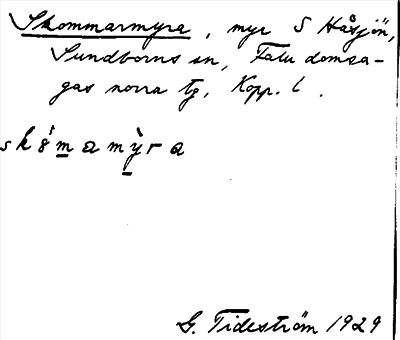 Skommarmyra, myr S Håsjön,
Sundborns sn, Falu domsa-
gas norra tg, Kopp. l.
skòmamỳra
G. Tideström 1929